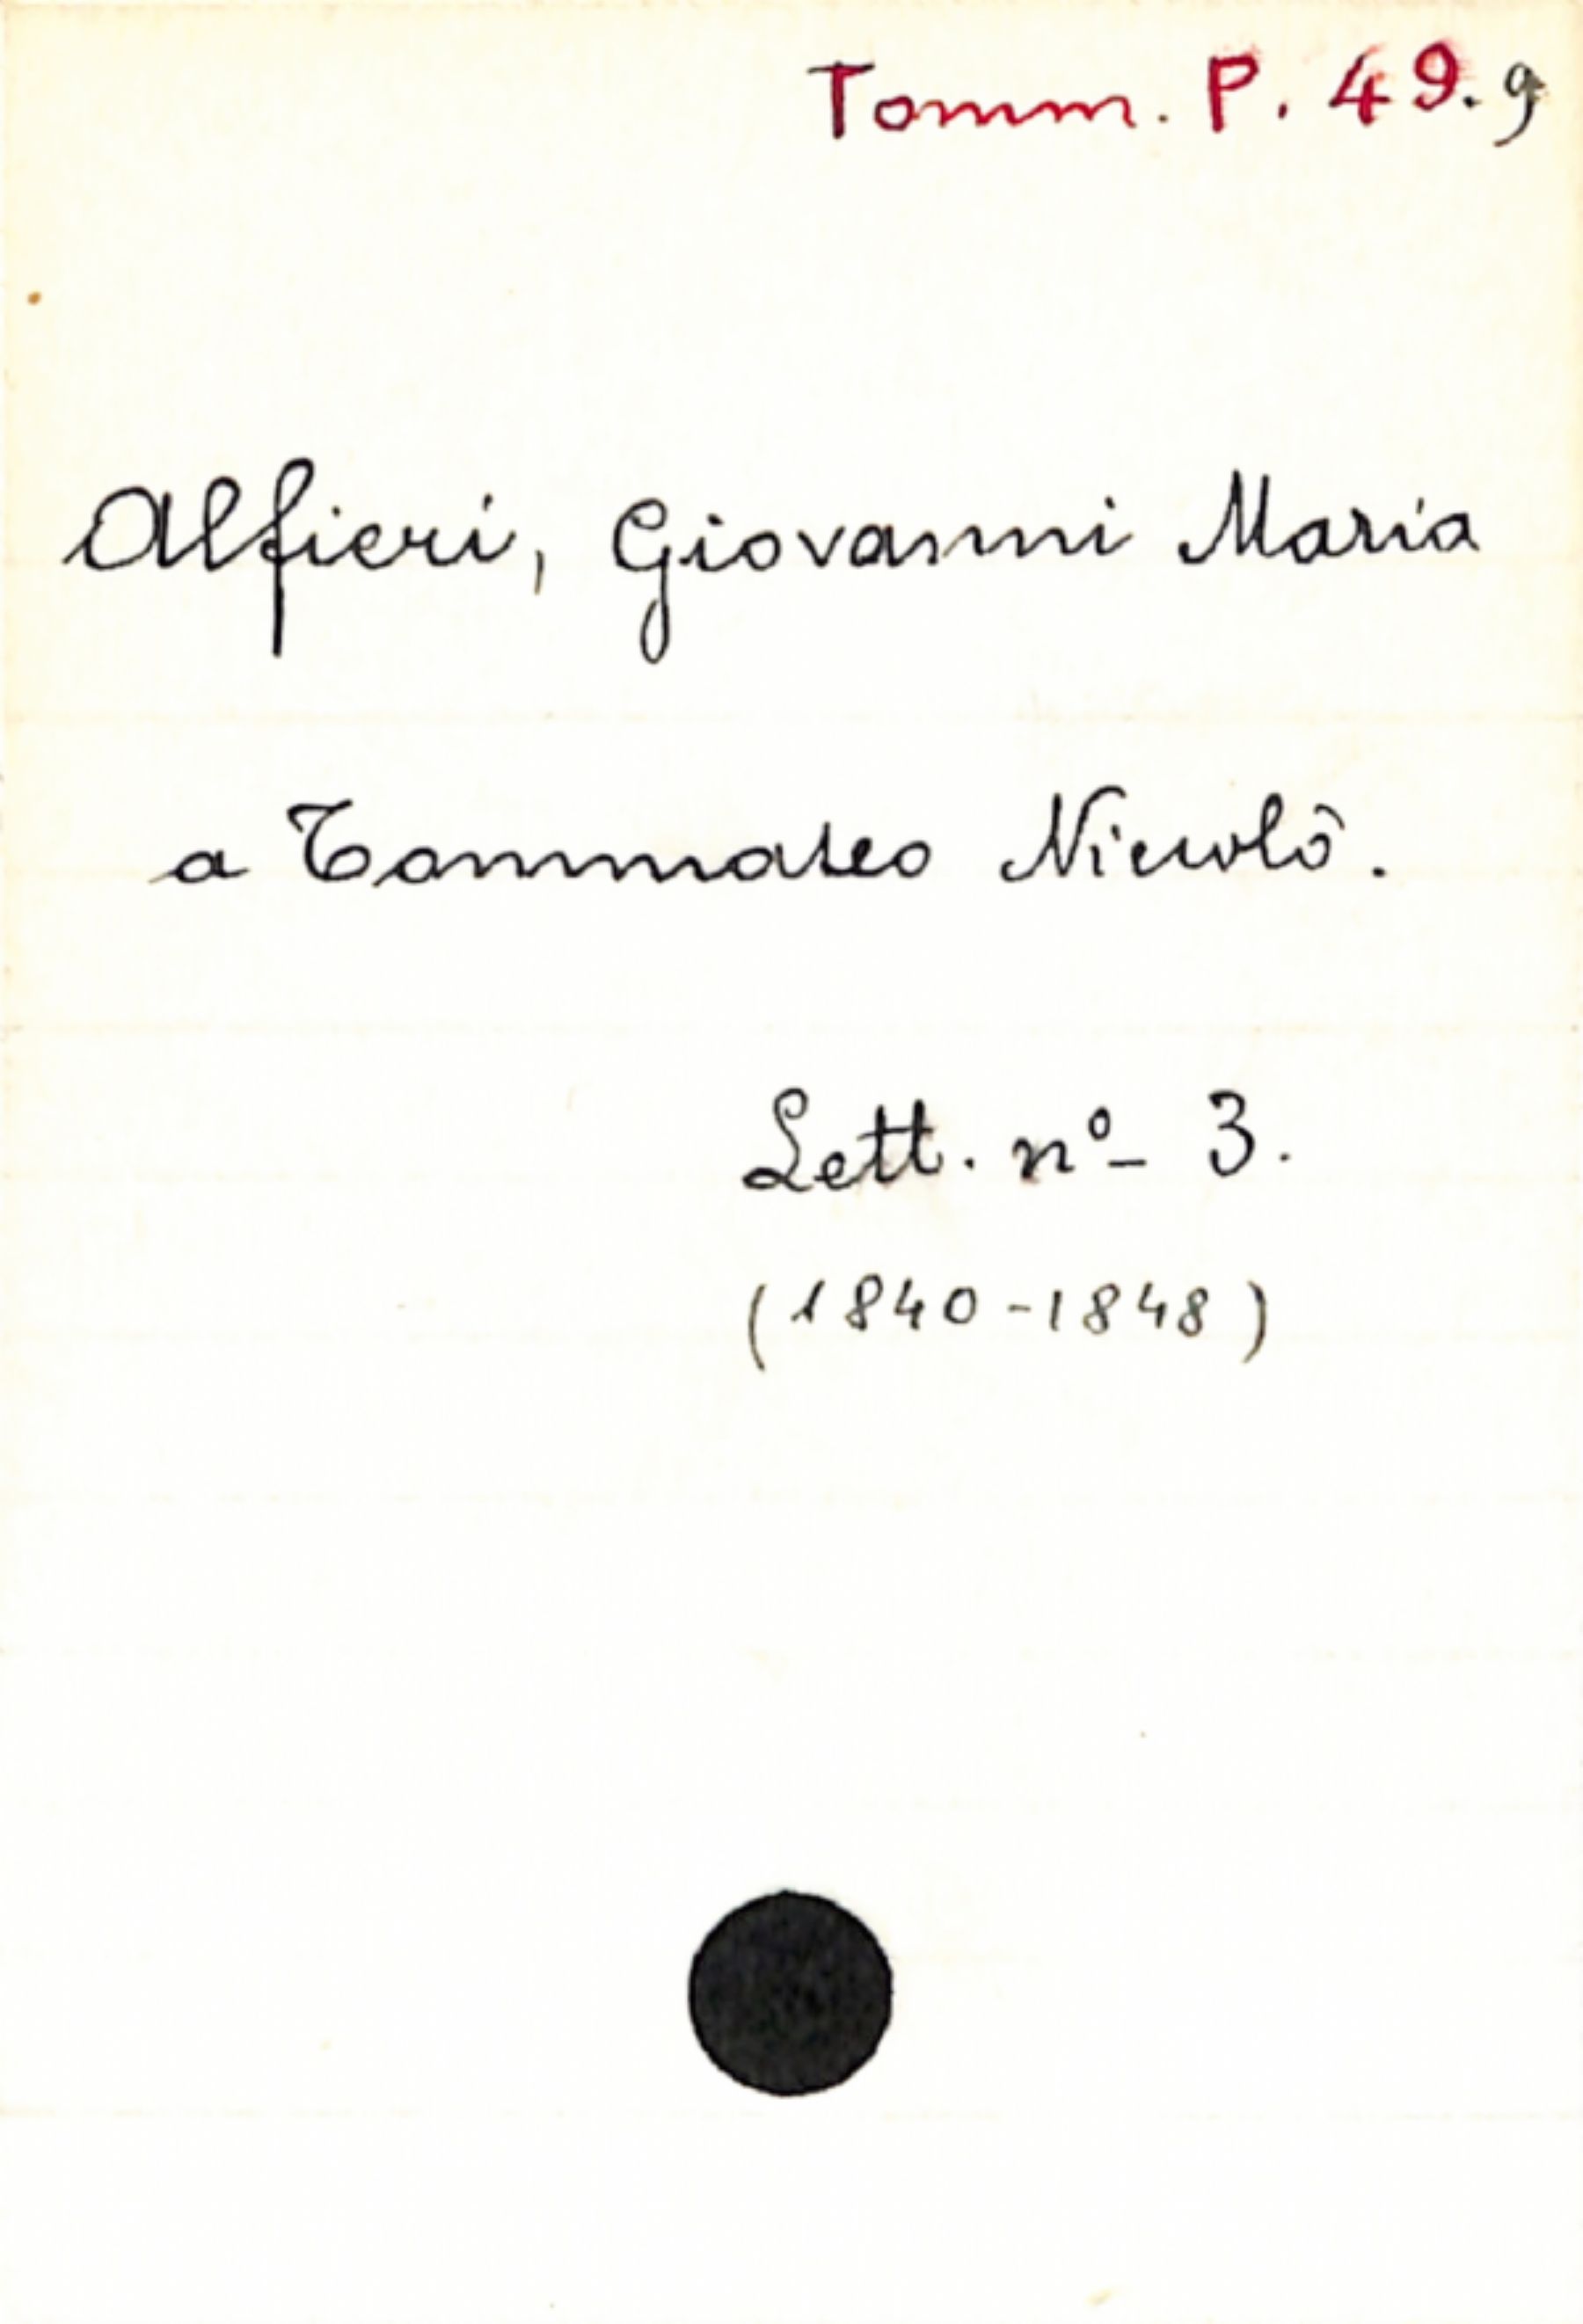 Tomm. P. 49.9
Alfieri, Giovanni Maria
a Tommaseo Niccolò.
Lett. nº 3.
(1840-1848)